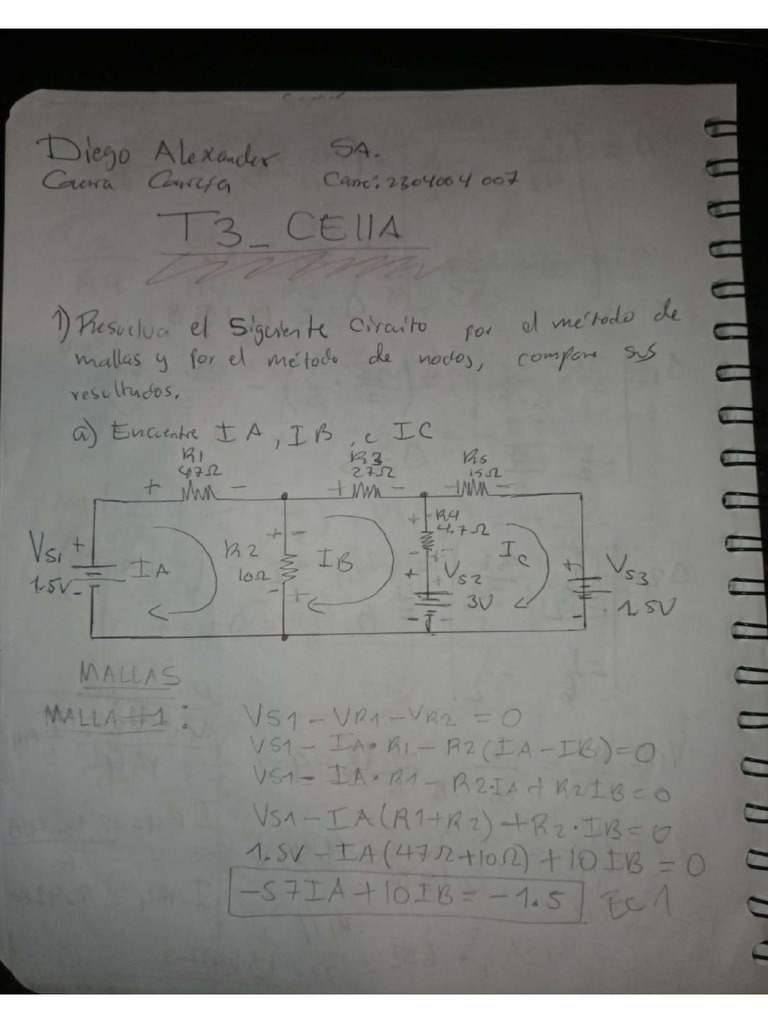 Diego Alexander SA.
García Carné: 2304004007
T3_CE11A
1) Resuelva el Siguiente Circuito por el método de
mallas y por el método de nodos, compare sus
resultados.
a) Encuentre IA, IB, e IC
R1 R3 R5
47Ω 27Ω 15Ω
+ - + - + -
VS1 + 1.5V -
IA
R2 10Ω + - - +
IB
+ R4 4.7Ω -
+ VS2 3V -
IC
+ VS3 1.5V -
MALLAS
MALLA #1: VS1 - VR1 - VR2 = 0
VS1 - IA·R1 - R2(IA - IB) = 0
VS1 - IA·R1 - R2·IA + R2IB = 0
VS1 - IA(R1+R2) + R2·IB = 0
1.5V - IA(47Ω+10Ω) + 10IB = 0
-57IA + 10IB = -1.5 Ec 1